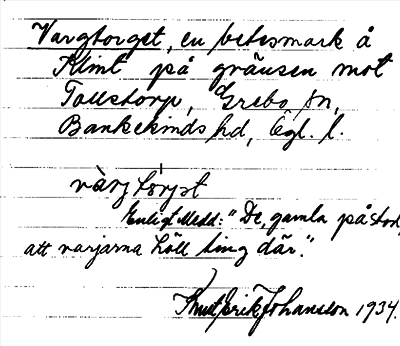 Vargtorget, en betesmark å
Klint på gränsen mot
Tollstorp, Grebo sn,
Bankekinds hd, Ögl. l.
vàrj tórjət
Enligt Medd: "De gamla påstod,
att varjarna höll ting där".
Knut Erik Johansson 1934.